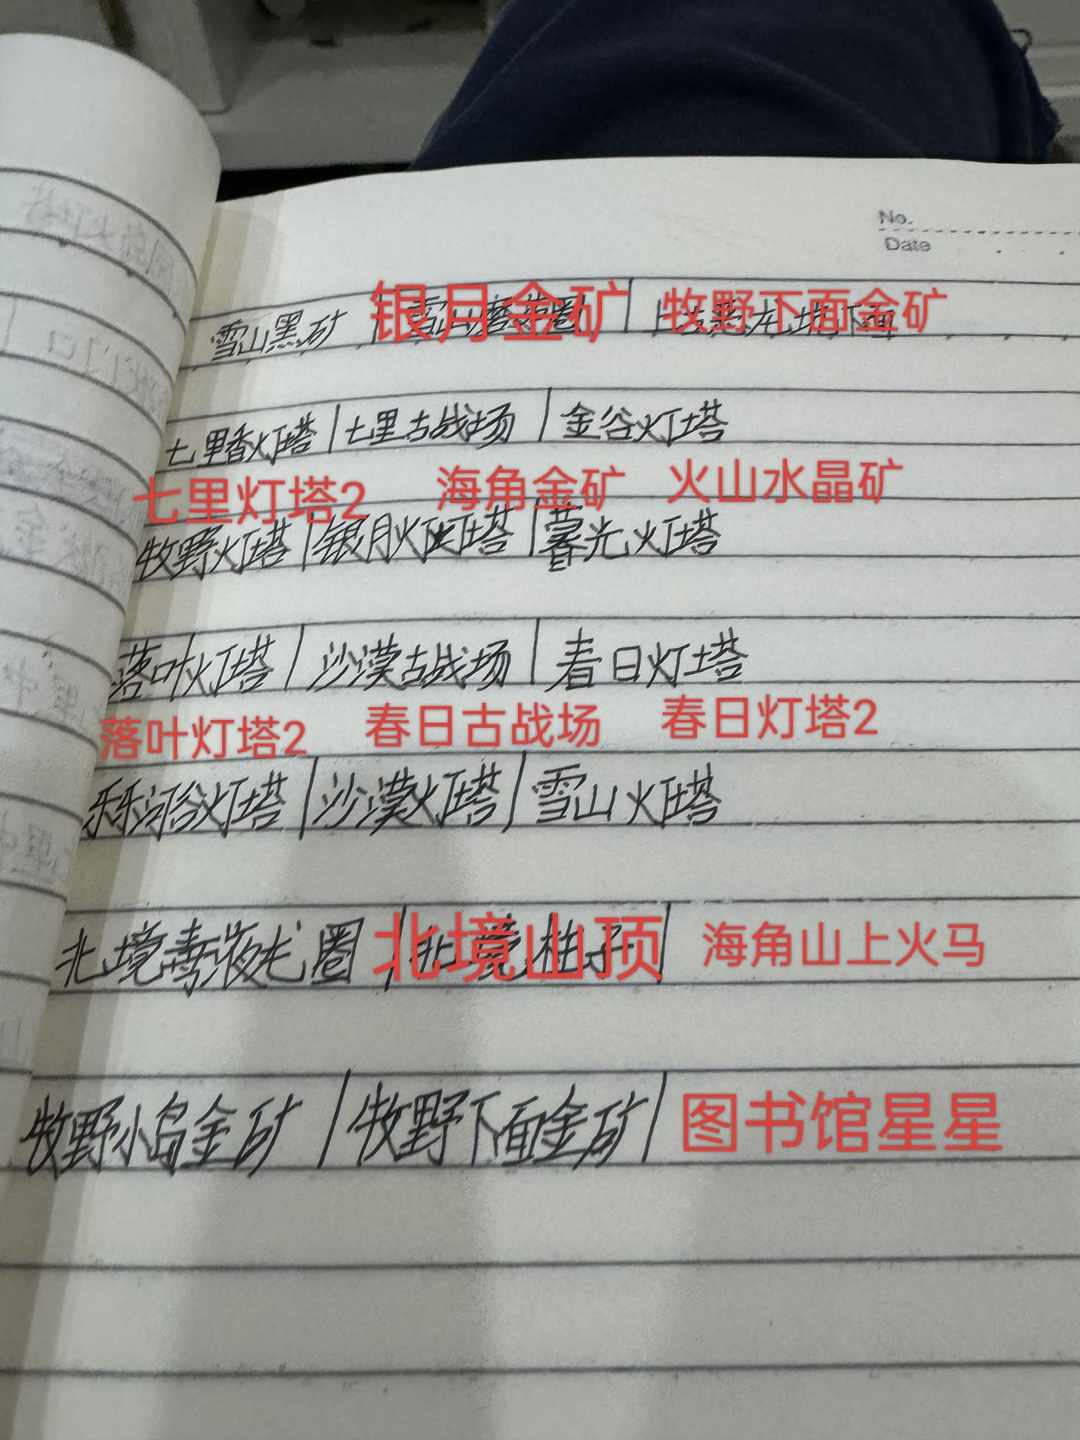 No.
Date
雪山黑矿 | 银月金矿 | 牧野下面金矿
七里香灯塔 | 七里古战场 | 金谷灯塔
七里灯塔2 海角金矿 火山水晶矿
牧野灯塔 | 银月灯塔 | 暮光灯塔
落叶灯塔 | 沙漠古战场 | 春日灯塔
落叶灯塔2 春日古战场 春日灯塔2
乐乐河谷灯塔 | 沙漠灯塔 | 雪山灯塔
北境毒液龙圈 | 北境山顶 | 海角山上火马
牧野小岛金矿 | 牧野下面金矿 | 图书馆星星